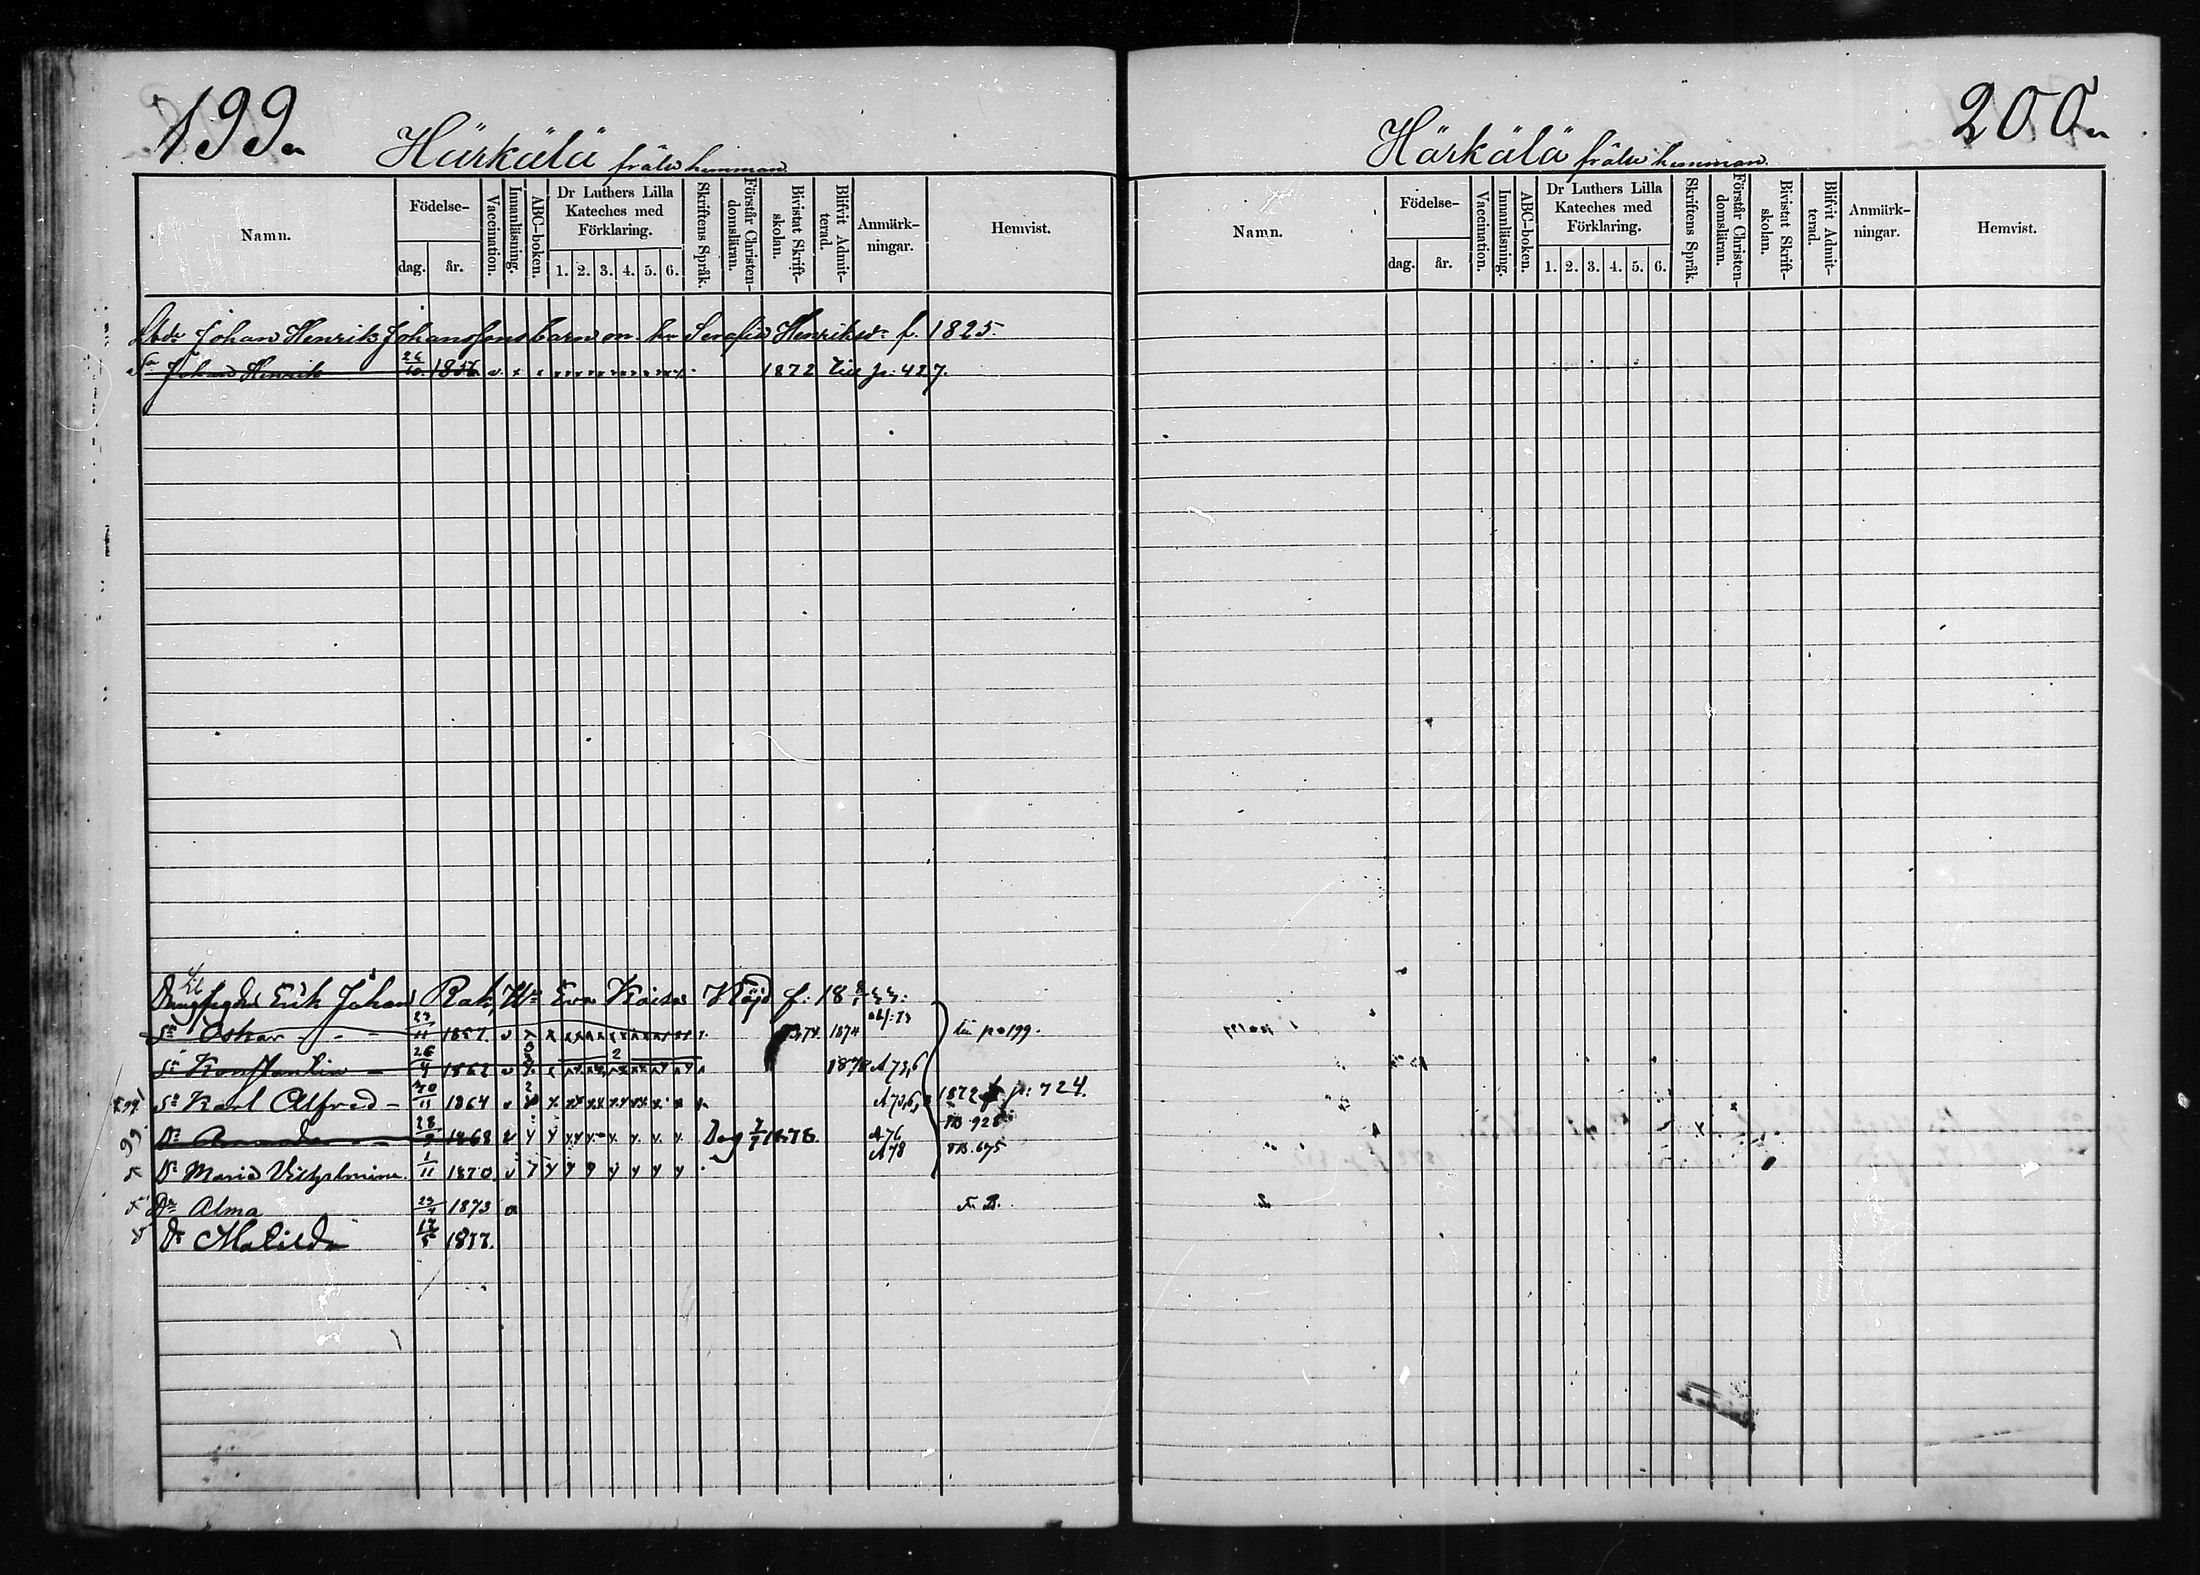 199a
Härkälä frälse hemman
Namn. Födelse- dag. år. Vaccination. Innanläsning. ABC-boken. Dr Luthers Lilla Kateches med Förklaring. 1. 2. 3. 4. 5. 6. Skriftens Språk. Förstår Christen-domsläran. Bivistat Skrift-skolan. Blifvit Admit-terad. Anmärk-ningar. Hemvist.
Johan Henrik Johanssons barn Serafia Henriksdr f. 1825.
Sn Johan Henrik 26/10 1856 v. x x 1872 till p. 427.
Erik Johan Rak, Hu Eva Kaisa Höjd f. 18
Sn Oskar - - - 27/11 1857. v 1874 till p 199.
Sn Konstantin - 26/4 1862 v 1878 A 73,6
Sn Karl Alfred - 30/11 1864 v 1872 p: 724.
Dr Amanda - 28/8 1868 v y y Dog 1878. A 76 FB. 928
A 78 FB. 675
Dr Maria Vilhelmina. 1/11 1870. v y y y y y y y
Dr Alma 1873
Dr Matilda 17/5 1877.
200a
Härkälä frälse hemman
Namn. Födelse- dag. år. Vaccination. Innanläsning. ABC-boken. Dr Luthers Lilla Kateches med Förklaring. 1. 2. 3. 4. 5. 6. Skriftens Språk. Förstår Christen-domsläran. Bivistat Skrift-skolan. Blifvit Admit-terad. Anmärk-ningar. Hemvist.